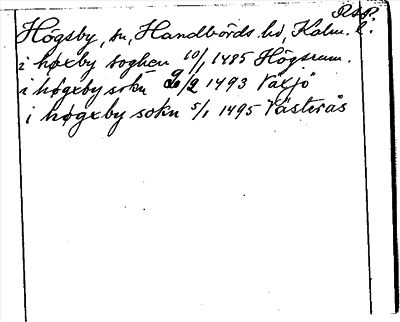 RAP.
Högsby, sn, Handbörds hd, Kalm. l.
i høxby soghen 10/1 1485 Högsrum.
i høgxby sokn 20/2 1493 Växjö
i høgxby sokn 5/1 1495 Västerås